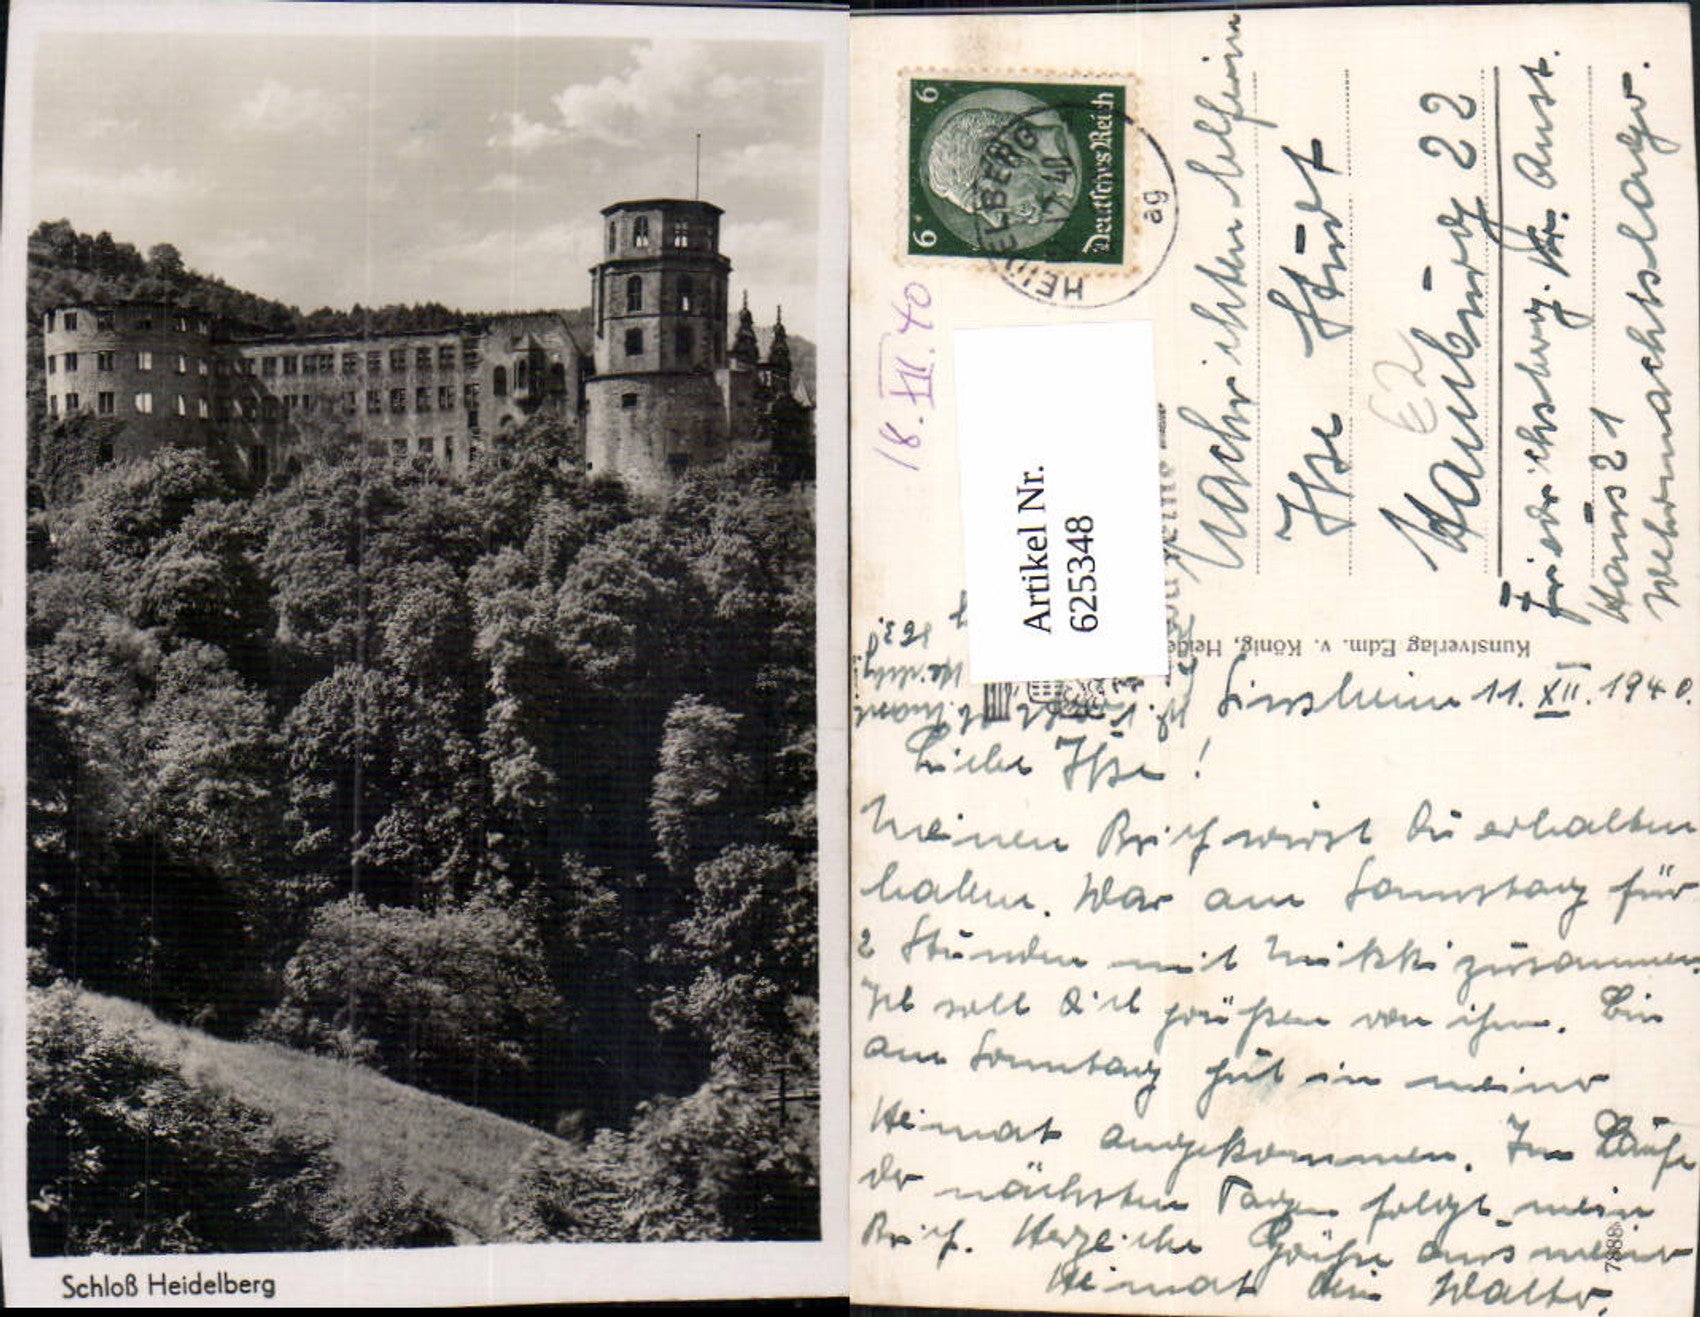 Schloß Heidelberg
6
6
Deutsches Reich
HEIDELBERG
40
ag
18. XII. 40
Artikel Nr.
625348
Nachrichtenhelferin
Ilse
Hamburg 22
E2
Friedrichsberg. Str. Anst.
Haus 21
Wehrmachtslager.
Kunstverlag Edm. v. König, Heide
Sinsheim 11. XII. 1940.
Liebe Ilse!
Meinen Brief wirst Du erhalten
haben. War am Samstag für
2 Stunden mit Mikki zusammen.
Ich soll Dich grüßen von ihm. Bin
am Sonntag gut in meiner
Heimat angekommen. Im Laufe
der nächsten Tagen folgt mein
Brief. Herzliche Grüße aus meiner
Heimat Dein Walter.
7888